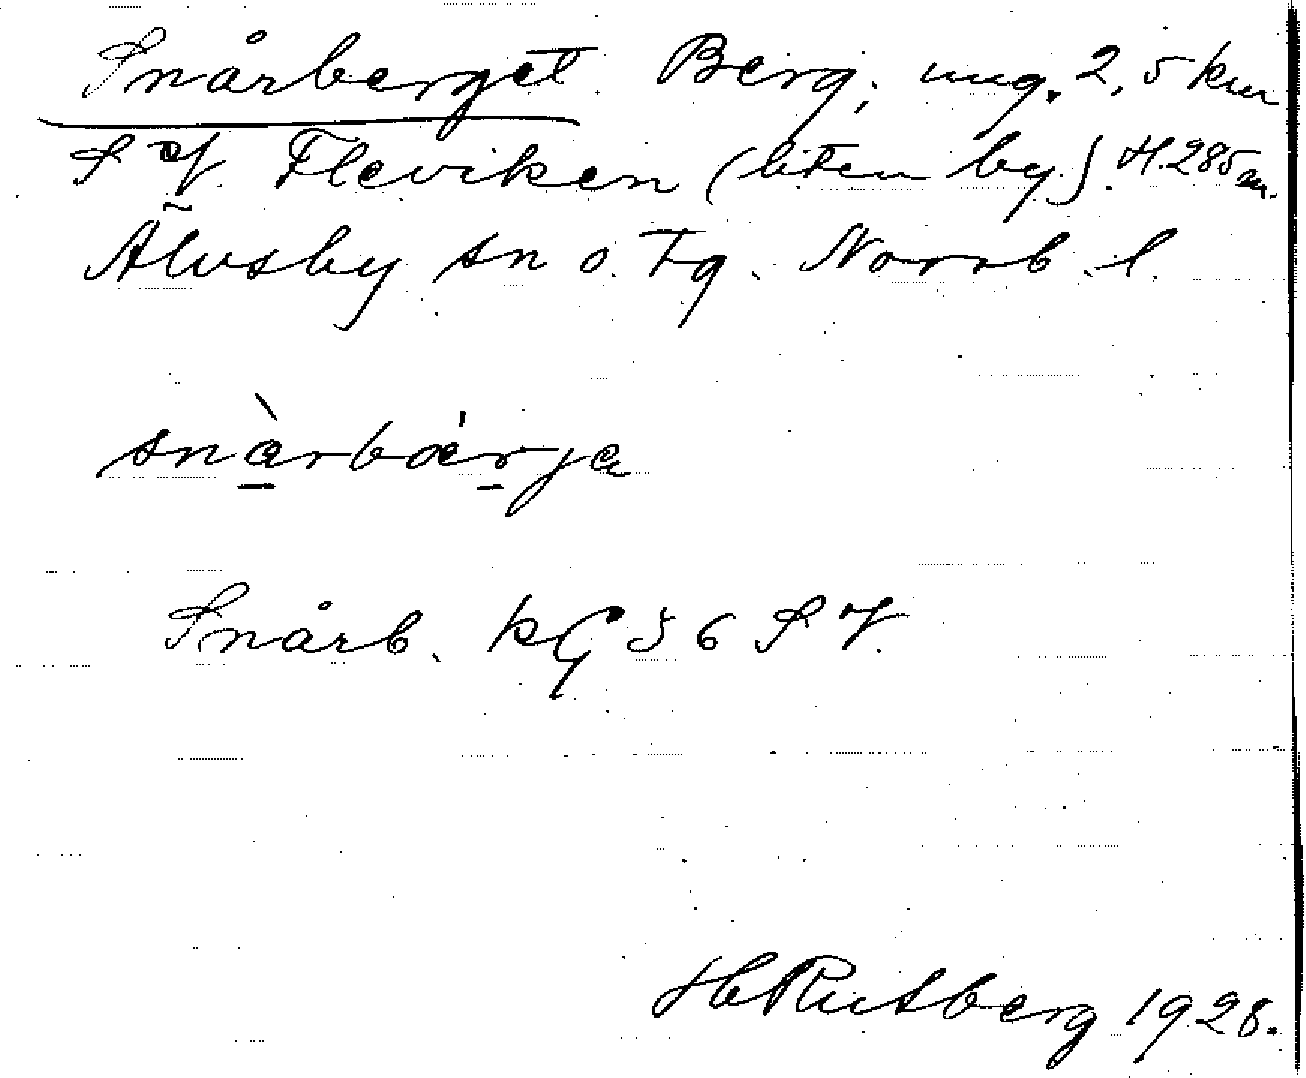 Snårberget. Berg, ung. 2,5 km
S of Fleviken (liten by). H. 285 m.
Älvsby sn o. tg. Norrb. l.
snàrbárja
Snårb. kG 56 SV.
H Rutberg 1928.